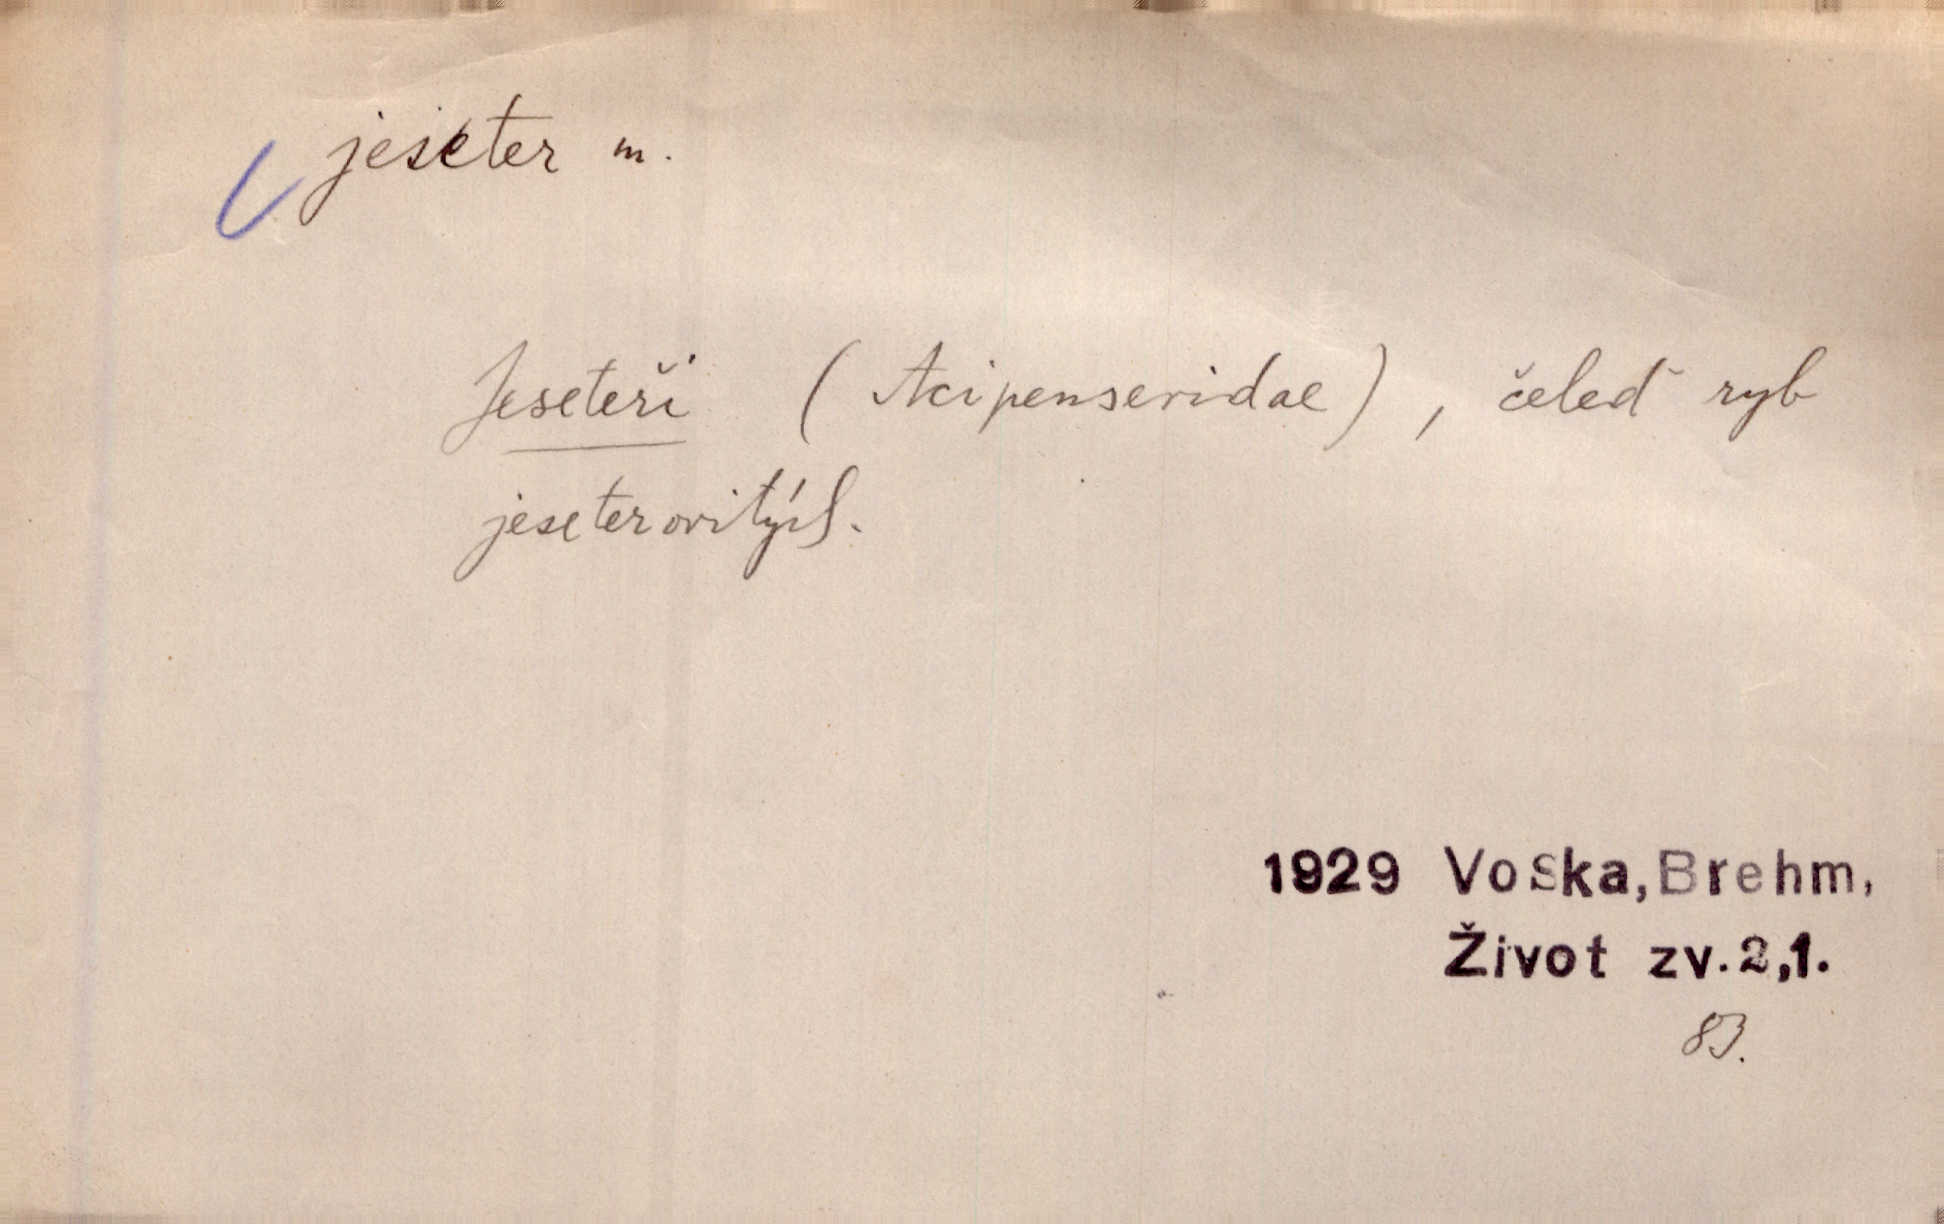 jeseter m.
Jeseteři (Acipenseridae), čeleď ryb
jeseterovitých.
1929 Voska, Brehm,
Život zv. 2,1.
83.